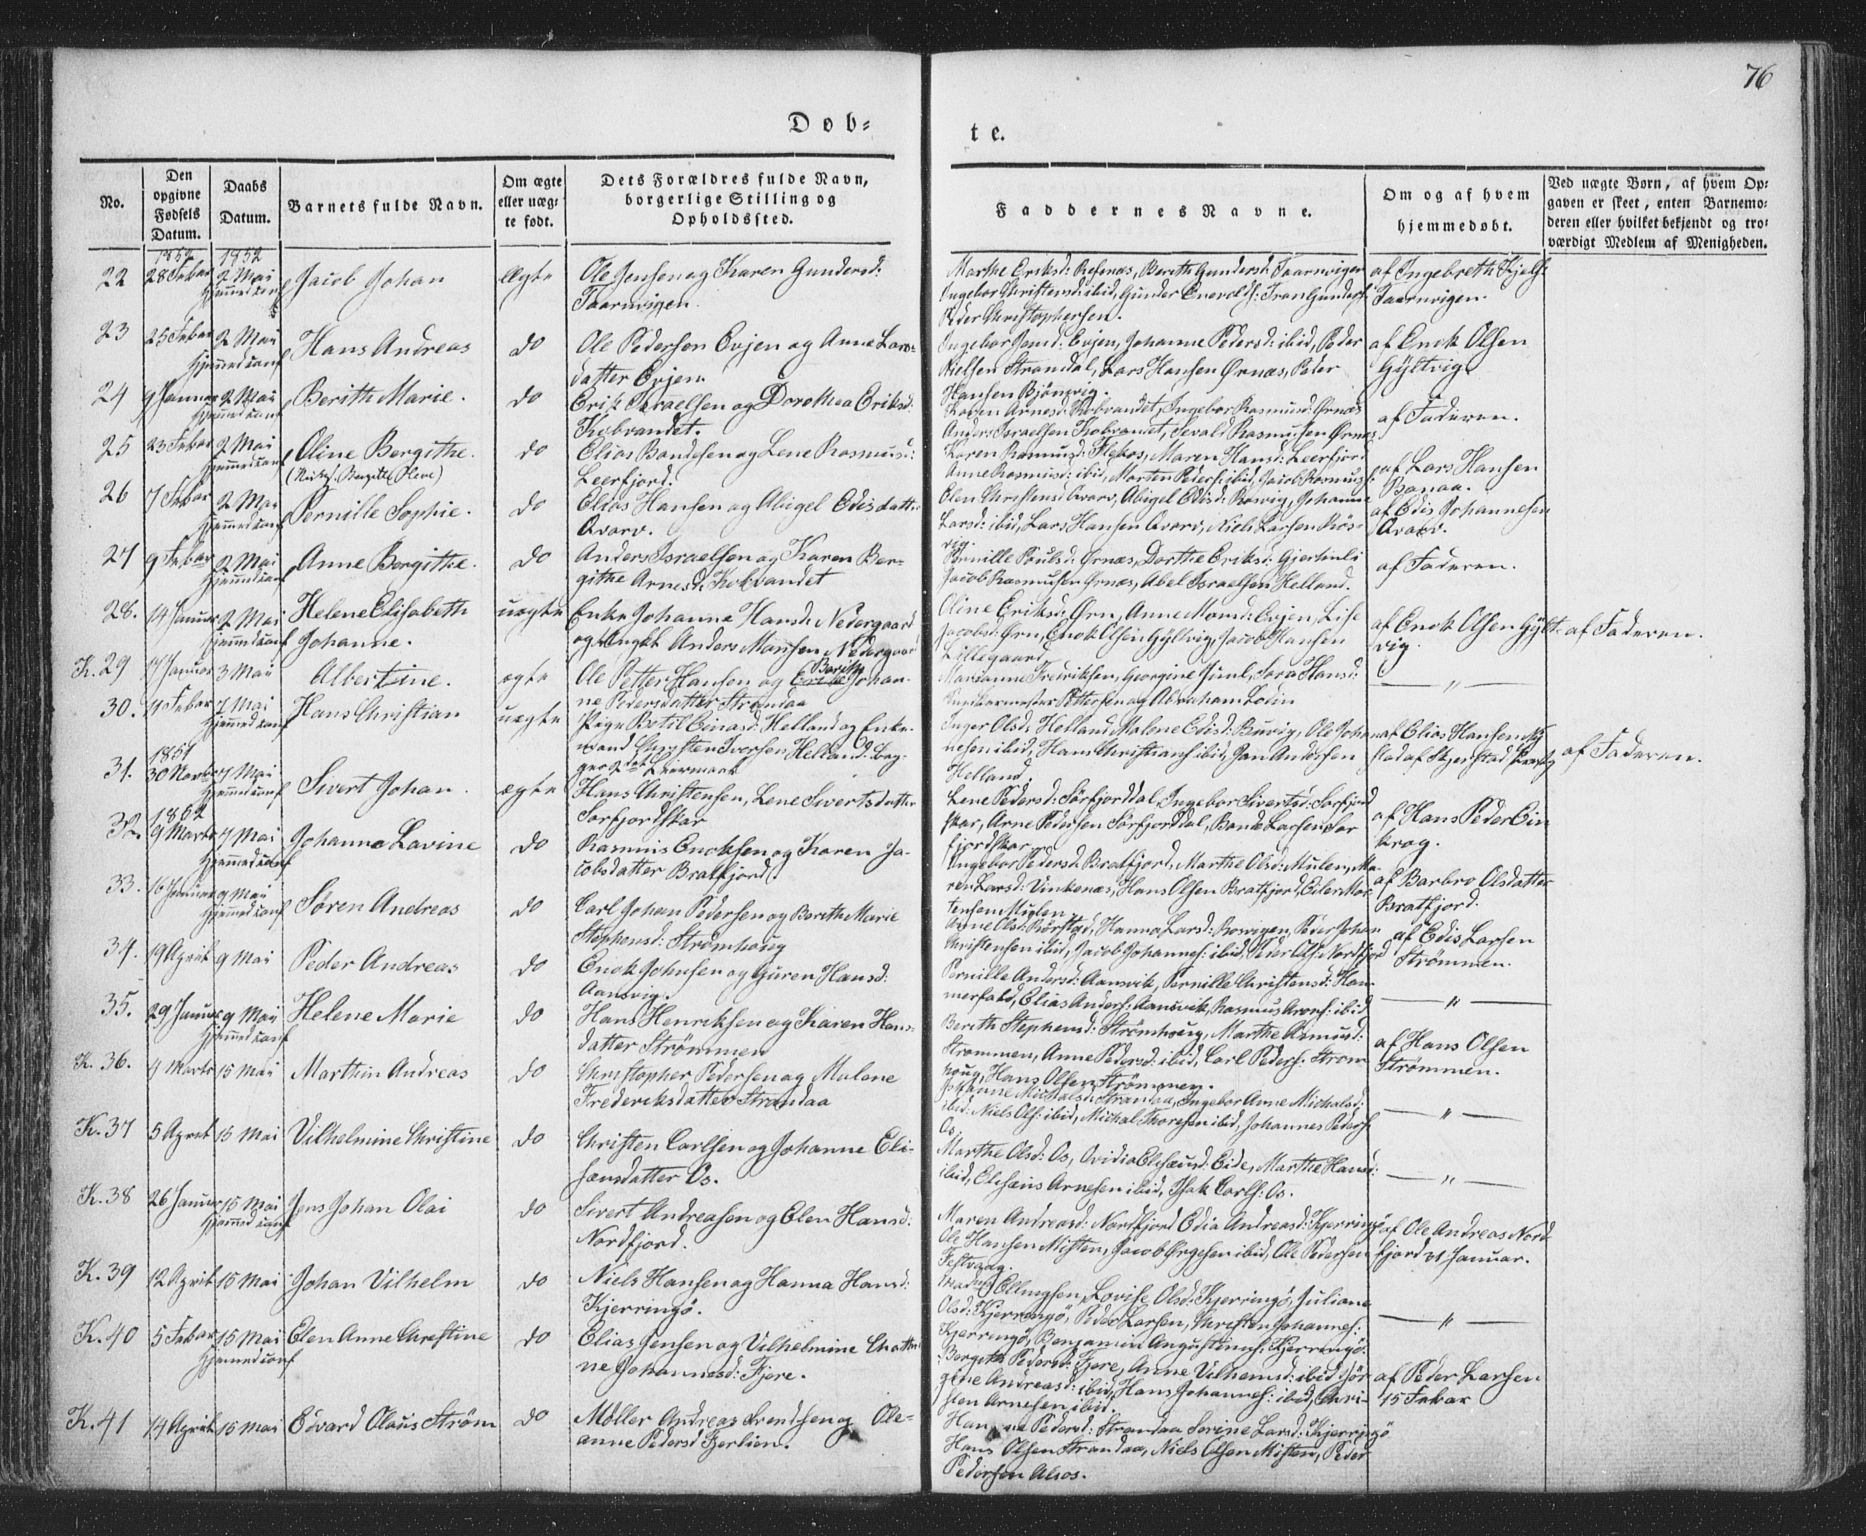 76
Døb-
te.
No.
Den opgivne Fødsels Datum.
Daabs Datum.
Barnets fulde Navn.
Om ægte eller uægte født.
Dets Forældres fulde Navn, borgerlige Stilling og Opholdssted.
Faddernes Navne.
Om og af hvem hjemmedøbt.
Ved uægte Børn, af hvem Opgaven er skeet, enten Barnemoderen eller hvilket bekjendt og troværdigt Medlem af Menigheden.
1852 1852
22 28 Febar 2 Mai Jacob Johan Ægte Ole Jensen og Karen Gundersd:
Taarnvigen.
Marthe Eriksd: Refsnæs, Bereth Gundersd: Taarnvigen
Ingebor Christensd: ibid, Gunder Enevolds:
Peder Christophersen.
af Ingebreth
Taarnvigen.
23 25 Febar 2 Mai Hans Andreas do Ole Pedersen Evjen og Anne Lars-
datter Evjen.
Ingebor Evjen, Johanne Pedersd: ibid, Peder
Nielsen Strandal, Lars Hansen Ørnæs, Peder
Hansen
af Enok Olsen
Gyltvig
24 9 Januar 2 Mai Berith Marie. do Erik Israelsen og Dorothea Eriksd:
Kobvandet.
Karen Arnesd: Kobvandet, Ingebor Rasmusd: Ørnæs
Anders Israelsen Kobvandet, Sevald Rasmussen Ørnæs
af Faderen.
25 23 Febar 2 Mai Oline Bergithe. do Elias Bendtsen og Lene Rasmusd:
Leerfjord.
Karen Rasmusd: Maren Hansd: Leerfjord
Anne Rasmusd: ibid, Morten Peders: ibid, Jacob Rasmuss:
af Lars Hansen
26 7 Febar 2 Mai Pernille Sophie. do Elias Hansen og Abigel Edisdatt:
Qvarv.
Elen Christensd: Qvarv, Abigel Edisd: Røsvig, Johanne
Larsd: ibid, Lars Hansen Qvarv, Niels Larsen Røs-
vig.
af Edis Johannesen
Qvarv.
27 9 Febar 2 Mai Anne Bergithe. do Anders Israelsen og Karen Ber-
githe Arnesd: Kobvandet
Pernille Poulsd: Ørnæs, Dorthe Eriksd: Gjertenli
Jacob Rasmussen Ørnæs, Abel Israelsen Helland.
af Faderen.
28. 14 Januar 2 Mai Helene Elisabeth
Johanne.
uægte Enke Johanne Hansd: Nedergaard
og Ungk: Anders Monsen Nedergaard
Oline Eriksd: Ørn, Anne Monsd: Evjen, Lise
Jacobsd: Ørn, Enok Olsen Gyltvig, Jacob Hansen
Lillegaard
af Enok Olsen Gylt-
vig.
af Faderen.
K. 29 17 Januar 3 Mai Albertine. ægte Ole Petter Hansen og Berith Johan-
ne Pedersdatter Strandaa
Marianne Fredriksen, Georgine Juul, Sara Hansd:
Pettersen og Abraham Lodin
— " —
30. 11 Febar 7 Mai Hans Christian uægte Pige Botil Einarsd: Helland og Enke-
mand Christen Iversen Helland. Beg-
ges 2det Leiermaal
Inger Olsd: Helland, Malene Edisd: Buvig, Ole Johan-
nesen ibid, Hans Christians: ibid, Jan Andersen
Helland.
af Elias Hansen
af Faderen.
1851
31. 30 Novbr 7 Mai Sivert Johan. ægte Hans Christensen, Lene Sivertsdatter
Sørfjordskar
Lene Pedersd: Sørfjorddal, Ingebor Sivertsd: Sørfjord
skar, Arne Pedersen Sørfjorddal, Bendt Larsen Sør
fjordskar
af Hans Peder Ein
krog.
1852
32. 9 Marts 7 Mai Johanna Lavine do Rasmus Enoksen og Karen Ja-
cobsdatter Bratfjord.
Ingebor Pedersd: Bratfjord, Marthe Olsd: Mulen, Ma-
ren Larsd: Vinkenæs, Hans Olsen Bratfjord, Eiler Mor-
tensen Mulen
af Barbro Olsdatter
Bratfjord.
33. 16 Januar 9 Mai Søren Andreas do Carl Johan Pedersen og Bereth Marie
Stephensd: Strømhoug
Anne Olsd: Rørstad, Hanna Larsd: Rosvigen, Peder Johan
Christensen ibid, Jacob Johannes: ibid, Peder Ols: Nordfjord
af Edis Larsen
Strømmen.
34. 19 April 9 Mai Peder Andreas do Enok Johnsen og Guren Hansd:
Aansvig.
Pernille Andersd: Aansvik, Pernille Christensd: Ham-
merfald, Elias Anders: Aansvik, Rasmus ibid
— " —
35. 29 Januar 9 Mai Helene Marie do Hans Henriksen og Karen Hans-
datter Strømmen
Berith Stephensd: Strømhoug, Marthe Asmusd:
Strømmen, Anne Pedersd: ibid, Carl Peders: Strøm-
houg, Hans Olsen Strømmen.
af Hans Olsen
Strømmen.
K. 36. 4 Marts 15 Mai Marthin Andreas do Christopher Pedersen og Malene
Frederiksdatter Strandaa
Johanne Michalsd: Strandaa, Ingebor Anne Michalsd:
ibid: Niels Ols: ibid, Michal Thoresen ibid, Johannes Peders:
Os.
— " —
K. 37 5 April 15 Mai Vilhelmine Christine do Christen Carlsen og Johanne Eli-
sæusdatter Os.
Marthe Olsd: Os, Ovidia Elisæusd: Eide, Marthe Hansd:
ibid, Elisæus Arnesen ibid, Isak Carls: Os.
— " —
K. 38 26 Januar 15 Mai Jens Johan Olai do Sivert Andreasen og Elen Hansd:
Nordfjord.
Maren Andreasd: Nordfjord Edia Andreasd: Kjerringø
Ole Hansen Misten, Jacob ibid, Ole Pedersen
Festvaag.
af Ole Andreas Nord
fjord 31 Januar.
K. 39 12 April 15 Mai Johan Vilhelm do Niels Hansen og Hanna Hansd:
Kjerringö.
Ellingsen, Lovise Olsd: Kjerringö, Juliane
Olsd: Kjerringö, Peder Larsen, Christen Johannes:
Kjerringö, Benjamin Augustinus: Kjerringö.
— " —
K. 40 5 Febar 15 Mai Elen Anne Christine do Elias Jensen og Vilhelmine Chatri-
ne Johannesd: Fjere.
Bergith Pedersd: Fjere, Anne Vilhemsd: ibid Jör
gine Andreasd: ibid, Hans Johannes: ibid, Chri-
sten Arnesen ibid.
af Peder Larsen
15 Febar
K. 41 14 April 15 Mai Edvard Olaus Strøm do Møller Andreas Svendsen og Ole-
anne Pedersd Fjerlien.
Pedersd: Strandaa Sorine Larsd: Kjerringö
Hans Olsen Strandaa, Niels Olsen Misten, Peder
Pedersen Alsos.